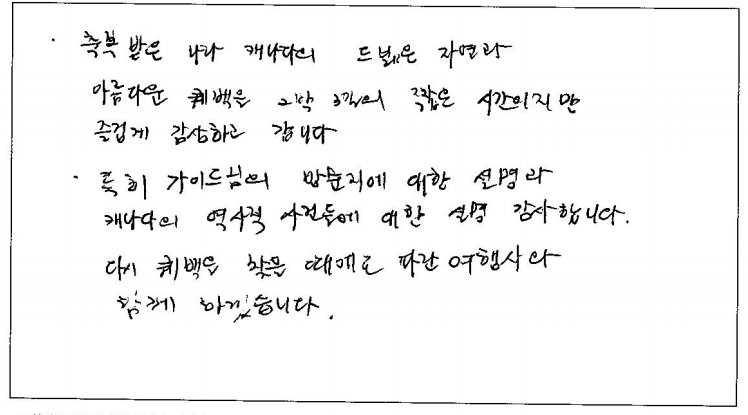 · 축복 받은 나라 캐나다의 드넓은 자연과
아름다운 퀘백을 2박 3일의 짧은 시간이지만
즐겁게 감상하고 갑니다
· 특히 가이드님의 방문지에 대한 설명과
캐나다의 역사적 사건들에 대한 설명 감사합니다.
다시 퀘백을 찾을 때에도 파란여행사와
함께 하겠습니다.